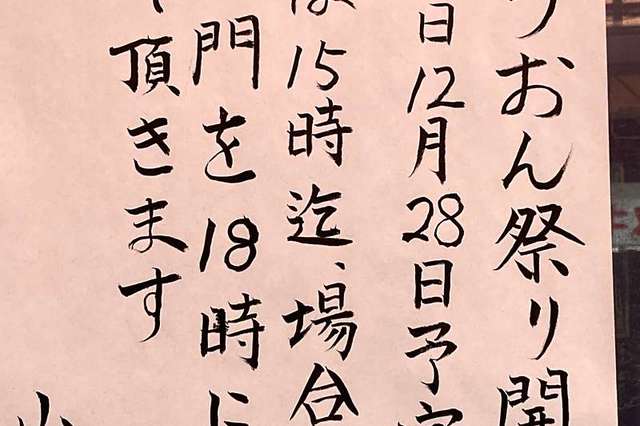 りおん祭り開
日12月28日予定
は15時迄、場合
門を18時に
て頂きます